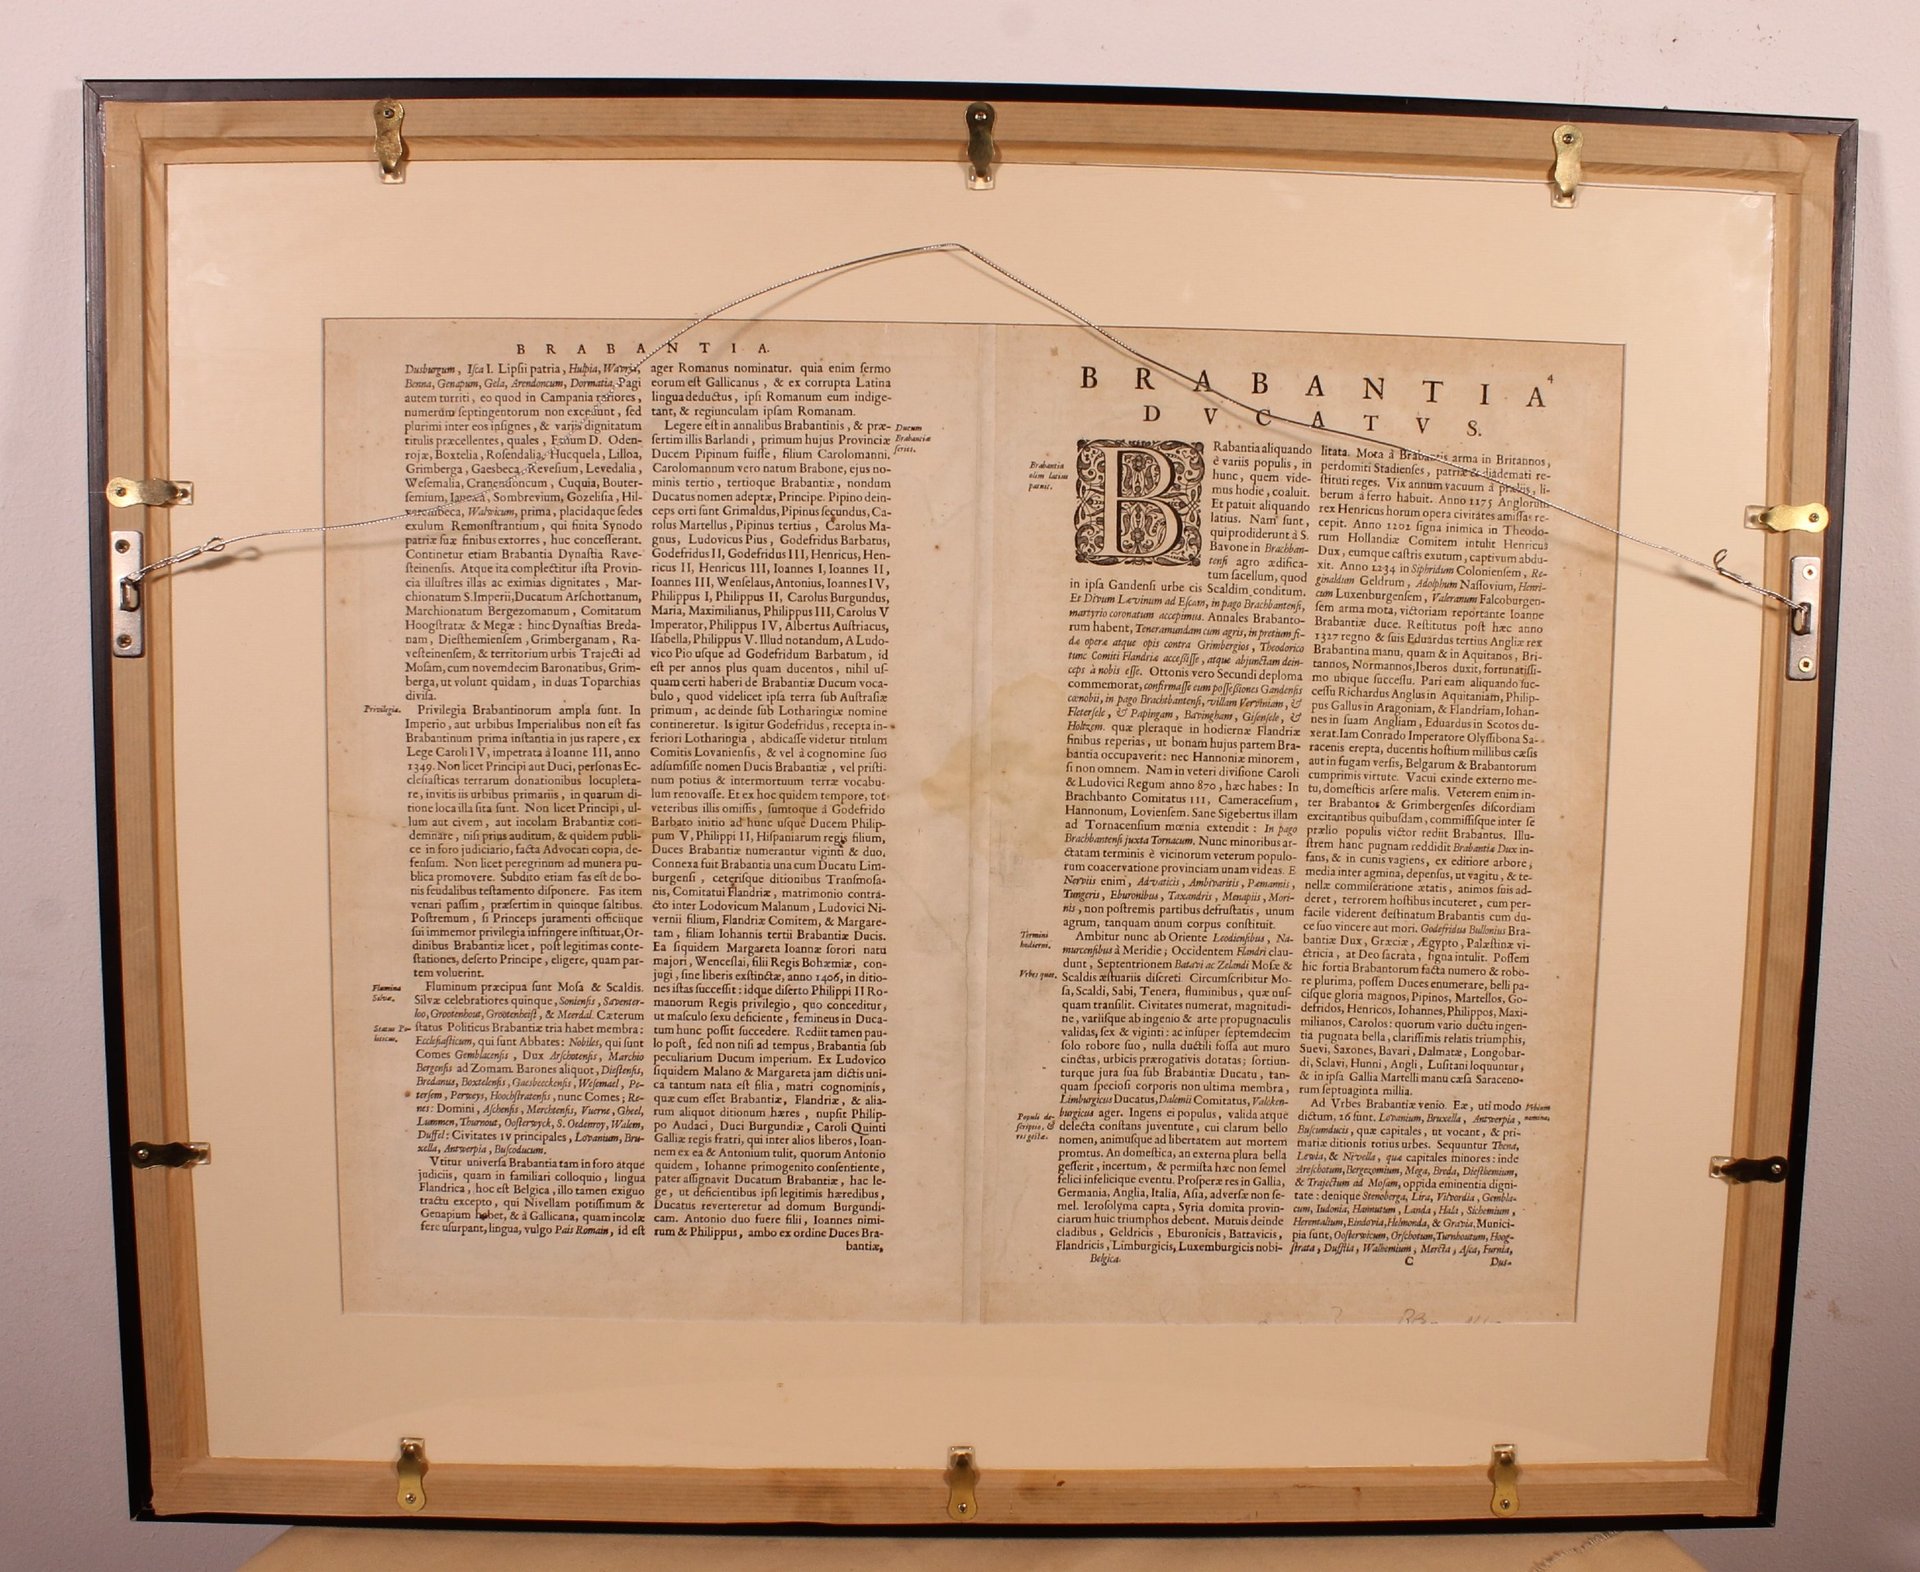 BRABANTIA.
Dusburgum, Isca I. Lipsii patria, Hulpia, Wavria,
Benna, Genapum, Gela, Arendoncum, Dormatia. Pagi
autem turriti, eo quod in Campania rariores,
numerum septingentorum non excedunt, sed
plurimi inter eos insignes, & variis dignitatum
titulis præcellentes, quales, Essium D. Oden-
rojæ, Boxtelia, Rosendalia, Hucquela, Lilloa,
Grimberga, Gaesbeca, Revesium, Levedalia,
Wesemalia, Cranendoncum, Cuquia, Bouter-
semium, Sombrevium, Gozelisia, Hil-
Walwicum, prima, placidaque sedes
exulum Remonstrantium, qui finita Synodo
patriæ suæ finibus extorres, huc concesserant.
Continetur etiam Brabantia Dynastia Rave-
steinensis. Atque ita complectitur ista Provin-
cia illustres illas ac eximias dignitates, Mar-
chionatum S. Imperii, Ducatum Arschottanum,
Marchionatum Bergezomanum, Comitatum
Hoogstratæ & Megæ: hinc Dynastias Breda-
nam, Diesthemiensem, Grimberganam, Ra-
vesteinensem, & territorium urbis Trajecti ad
Mosam, cum novemdecim Baronatibus, Grim-
berga, ut volunt quidam, in duas Toparchias
divisa.
Privilegia.
Privilegia Brabantinorum ampla sunt. In
Imperio, aut urbibus Imperialibus non est fas
Brabantinum prima instantia in jus rapere, ex
Lege Caroli IV, impetrata à Ioanne III, anno
1349. Non licet Principi aut Duci, personas Ec-
clesiasticas terrarum donationibus locupleta-
re, invitis iis urbibus primariis, in quarum di-
tione loca illa sita sunt. Non licet Principi, ul-
lum aut civem, aut incolam Brabantiæ con-
demnare, nisi prius auditum, & quidem publi-
ce in foro judiciario, facta Advocati copia, de-
fensum. Non licet peregrinum ad munera pu-
blica promovere. Subdito etiam fas est de bo-
nis feudalibus testamento disponere. Fas item
venari passim, præsertim in quinque saltibus.
Postremum, si Princeps juramenti officiique
sui immemor privilegia infringere instituat, Or-
dinibus Brabantiæ licet, post legitimas conte-
stationes, deserto Principe, eligere, quam par-
tem voluerint.
Flumina
Silvæ.
Fluminum præcipua sunt Mosa & Scaldis.
Silvæ celebratiores quinque, Soniensis, Saventer-
loo, Grootenhout, Grootenheist, & Meerdal. Cæterum
Status Po-
liticus.
status Politicus Brabantiæ tria habet membra:
Ecclesiasticum, qui sunt Abbates: Nobiles, qui sunt
Comes Gemblacensis, Dux Arschotensis, Marchio
Bergensis ad Zomam. Barones aliquot, Diestensis,
Bredanus, Boxtelensis, Gaesbeeckensis, Wesemael, Pe-
tersem, Perweys, Hoochstratensis, nunc Comes; Re-
nes: Domini, Aschensis, Merchtensis, Vuerne, Gheel,
Lummen, Thurnout, Oosterwyck, S. Oedenroy, Walem,
Duffel: Civitates IV principales, Lovanium, Bru-
xella, Antwerpia, Buscoducum.
Vtitur universa Brabantia tam in foro atque
judiciis, quam in familiari colloquio, lingua
Flandrica, hoc est Belgica, illo tamen exiguo
tractu excepto, qui Nivellam potissimum &
Genapium habet, & à Gallicana, quam incolæ
fere usurpant, lingua, vulgo Pais Romain, id est
ager Romanus nominatur. quia enim sermo
eorum est Gallicanus, & ex corrupta Latina
lingua deductus, ipsi Romanum eum indige-
tant, & regiunculam ipsam Romanam.
Legere est in annalibus Brabantinis, & præ-
Ducum
Brabantiæ
series.
sertim illis Barlandi, primum hujus Provinciæ
Ducem Pipinum fuisse, filium Carolomanni.
Carolomannum vero natum Brabone, ejus no-
minis tertio, tertioque Brabantiæ, nondum
Ducatus nomen adeptæ, Principe. Pipino dein-
ceps orti sunt Grimaldus, Pipinus secundus, Ca-
rolus Martellus, Pipinus tertius, Carolus Ma-
gnus, Ludovicus Pius, Godefridus Barbatus,
Godefridus II, Godefridus III, Henricus, Hen-
ricus II, Henricus III, Ioannes I, Ioannes II,
Ioannes III, Wenselaus, Antonius, Ioannes IV,
Philippus I, Philippus II, Carolus Burgundus,
Maria, Maximilianus, Philippus III, Carolus V
Imperator, Philippus IV, Albertus Austriacus,
Isabella, Philippus V. Illud notandum, A Ludo-
vico Pio usque ad Godefridum Barbatum, id
est per annos plus quam ducentos, nihil us-
quam certi haberi de Brabantiæ Ducum voca-
bulo, quod videlicet ipsa terra sub Austrasiæ
primum, ac deinde sub Lotharingiæ nomine
contineretur. Is igitur Godefridus, recepta in-
feriori Lotharingia, abdicasse videtur titulum
Comitis Lovaniensis, & vel à cognomine suo
adsumsisse nomen Ducis Brabantiæ, vel pristi-
num potius & intermortuum terræ vocabu-
lum renovasse. Et ex hoc quidem tempore, tot
veteribus illis omissis, sumtoque à Godefrido
Barbato initio ad hunc usque Ducem Philip-
pum V, Philippi II, Hispaniarum regis filium,
Duces Brabantiæ numerantur viginti & duo.
Connexa fuit Brabantia una cum Ducatu Lim-
burgensi, ceterisque ditionibus Transmosa-
nis, Comitatui Flandriæ, matrimonio contra-
cto inter Lodovicum Malanum, Ludovici Ni-
vernii filium, Flandriæ Comitem, & Margare-
tam, filiam Iohannis tertii Brabantiæ Ducis.
Ea siquidem Margareta Ioannæ sorori natu
majori, Wenceslai, filii Regis Bohæmiæ, con-
jugi, sine liberis exstinctæ, anno 1406, in ditio-
nes istas successit: idque diserto Philippi II Ro-
manorum Regis privilegio, quo conceditur,
ut masculo sexu deficiente, femineus in Duca-
tum hunc possit succedere. Rediit tamen pau-
lo post, sed non nisi ad tempus, Brabantia sub
peculiarium Ducum imperium. Ex Ludovico
siquidem Malano & Margareta jam dictis uni-
ca tantum nata est filia, matri cognominis,
quæ cum esset Brabantiæ, Flandriæ, & alia-
rum aliquot ditionum hæres, nupsit Philip-
po Audaci, Duci Burgundiæ, Caroli Quinti
Galliæ regis fratri, qui inter alios liberos, Ioan-
nem ex ea & Antonium tulit, quorum Antonio
quidem, Iohanne primogenito consentiente,
pater assignavit Ducatum Brabantiæ, hac le-
ge, ut deficientibus ipsi legitimis hæredibus,
Ducatus reverteretur ad domum Burgundi-
cam. Antonio duo fuere filii, Ioannes nimi-
rum & Philippus, ambo ex ordine Duces Bra-
bantiæ,
4
BRABANTIA
DVCATVS.
Brabantia
olim latius
patuit.
BRabantia aliquando
è variis populis, in
hunc, quem vide-
mus hodie, coaluit.
Et patuit aliquando
latius. Nam sunt,
qui prodiderunt à S.
Bavone in Brachban-
tensi agro ædifica-
tum sacellum, quod
in ipsa Gandensi urbe cis Scaldim conditum.
Et Divum Lævinum ad Escam, in pago Brachbantensi,
martyrio coronatum accepimus. Annales Brabanto-
rum habent, Teneramundam cum agris, in pretium fi-
dæ opera atque opis contra Grimbergios, Theodorico
tunc Comiti Flandriæ accessisse, atque abjunctam dein-
ceps à nobis esse. Ottonis vero Secundi deploma
commemorat, confirmasse eum possessiones Gandensis
cœnobii, in pago Brachbantensi, villam Vervinium, &
Fletersele, & Papingam, Bavingham, Gisensele, &
Holtzem. quæ pleraque in hodiernæ Flandriæ
finibus reperias, ut bonam hujus partem Bra-
bantia occupaverit: nec Hannoniæ minorem,
si non omnem. Nam in veteri divisione Caroli
& Ludovici Regum anno 870, hæc habes: In
Brachbanto Comitatus III, Cameracesium,
Hannonum, Loviensem. Sane Sigebertus illam
ad Tornacensium mœnia extendit: In pago
Brachbantensi juxta Tornacum. Nunc minoribus ar-
ctatam terminis è vicinorum veterum populo-
rum coacervatione provinciam unam videas. E
Nerviis enim, Advaticis, Ambivaritis, Pæmannis,
Tungeris, Eburonibus, Taxandris, Menapiis, Mori-
nis, non postremis partibus defrustatis, unum
agrum, tanquam unum corpus constituit.
Termini
hodierni.
Ambitur nunc ab Oriente Leodiensibus, Na-
murcensibus à Meridie; Occidentem Flandri clau-
dunt, Septentrionem Batavi ac Zelandi Mosæ &
Vrbes quot.
Scaldis æstuariis discreti. Circumscribitur Mo-
sa, Scaldi, Sabi, Tenera, fluminibus, quæ nus-
quam transilit. Civitates numerat, magnitudi-
ne, variisque ab ingenio & arte propugnaculis
validas, sex & viginti: ac insuper septemdecim
solo robore suo, nulla ductili fossa aut muro
cinctas, urbicis prærogativis dotatas; sortiun-
turque jura sua sub Brabantiæ Ducatu, tan-
quam speciosi corporis non ultima membra,
Limburgicus Ducatus, Dalemii Comitatus, Valcken-
Populi de-
scriptio, &
res gestæ.
burgicus ager. Ingens ei populus, valida atque
delecta constans juventute, cui clarum bello
nomen, animusque ad libertatem aut mortem
promtus. An domestica, an externa plura bella
gesserit, incertum, & permista hæc non semel
felici infelicique eventu. Prosperæ res in Gallia,
Germania, Anglia, Italia, Asia, adversæ non se-
mel. Ierosolyma capta, Syria domita provin-
ciarum huic triumphos debent. Mutuis deinde
cladibus, Geldricis, Eburonicis, Battavicis,
Flandricis, Limburgicis, Luxemburgicis nobi-
Belgica.
litata. Mota à Brabantis arma in Britannos,
perdomiti Stadienses, patriæ & diademati re-
stituti reges. Vix annum vacuum à præliis, li-
berum à ferro habuit. Anno 1175 Anglorum
rex Henricus horum opera civitates amissas re-
cepit. Anno 1202 signa inimica in Theodo-
rum Hollandiæ Comitem intulit Henricus
Dux, eumque castris exutum, captivum abdu-
xit. Anno 1234 in Siphridum Coloniensem, Re-
ginaldum Geldrum, Adolphum Nassovium, Henri-
cum Luxenburgensem, Valeranum Falcoburgen-
sem arma mota, victoriam reportante Ioanne
Brabantiæ duce. Restitutus post hæc anno
1327 regno & suis Eduardus tertius Angliæ rex
Brabantina manu, quam & in Aquitanos, Bri-
tannos, Normannos, Iberos duxit, fortunatissi-
mo ubique successu. Pari eam aliquando suc-
cessu Richardus Anglus in Aquitaniam, Philip-
pus Gallus in Aragoniam, & Flandriam, Iohan-
nes in suam Angliam, Eduardus in Scotos du-
xerat. Iam Conrado Imperatore Olyssibona Sa-
racenis erepta, ducentis hostium millibus cæsis
aut in fugam versis, Belgarum & Brabantorum
cumprimis virtute. Vacui exinde externo me-
tu, domesticis arsere malis. Veterem enim in-
ter Brabantos & Grimbergenses discordiam
excitantibus quibusdam, commississque inter se
prælio populis victor rediit Brabantus. Illu-
strem hanc pugnam reddidit Brabantiæ Dux in-
fans, & in cunis vagiens, ex editiore arbore,
media inter agmina, depensus, ut vagitu, & te-
nellæ commiseratione ætatis, animos suis ad-
deret, terrorem hostibus incuteret, cum per-
facile viderent destinatum Brabantis cum du-
ce suo vincere aut mori. Godefridus Bullonius Bra-
bantiæ Dux, Græciæ, Ægypto, Palæstinæ vi-
ctricia, at Deo sacrata, signa intulit. Possem
hic fortia Brabantorum facta numero & robo-
re plurima, possem Duces enumerare, belli pa-
cisque gloria magnos, Pipinos, Martellos, Go-
defridos, Henricos, Iohannes, Philippos, Maxi-
milianos, Carolos: quorum vario ductu ingen-
tia pugnata bella, clarissimis relatis triumphis,
Suevi, Saxones, Bavari, Dalmatæ, Longobar-
di, Sclavi, Hunni, Angli, Lusitani loquuntur,
& in ipsa Gallia Martelli manu cæsa Saraceno-
rum septuaginta millia.
Vrbium
nomina.
Ad Vrbes Brabantiæ venio. Eæ, uti modo
dictum, 26 sunt. Lovanium, Bruxella, Antwerpia,
Buscumducis, quæ capitales, ut vocant, & pri-
mariæ ditionis totius urbes. Sequuntur Thena,
Lewia, & Nivella, quæ capitales minores: inde
Areschotum, Bergezomium, Mega, Breda, Diesthemium,
& Trajectum ad Mosam, oppida eminentia digni-
tate: denique Stenoberga, Lira, Vilvordia, Gembla-
cum, Iudonia, Hannutum, Landa, Hala, Sichemium,
Herentalium, Eindovia, Helmonda, & Gravia. Munici-
pia sunt, Oosterwicum, Orschotum, Turnhoutum, Hoog-
strata, Dufflia, Walhemium, Mercta, Asca, Furnia,
C
Dus-